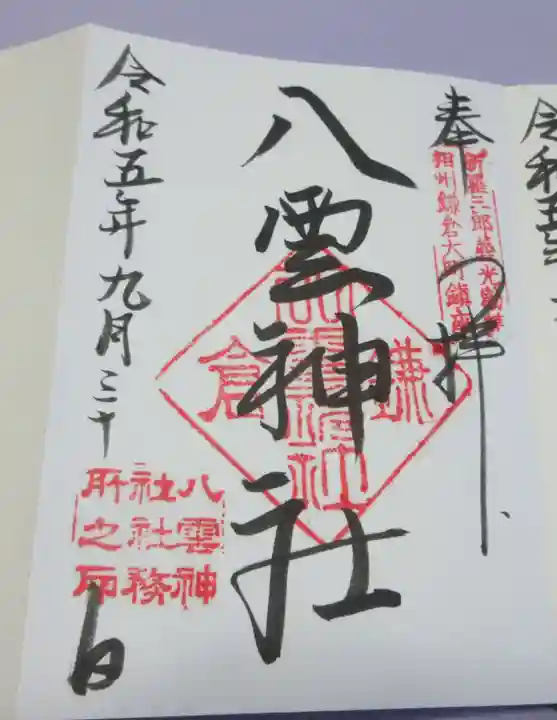 奉拝
新羅三郎義光勧請
相州鎌倉大町鎮座
八雲神社
鎌倉
八雲神社
令和五年九月三十日
八雲神
社社務
所之印
令和五年